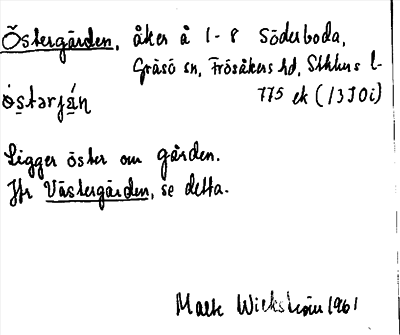 Östergården, åker å 1-8 Söderboda,
Gräsö sn, Frösåkers hd, Sthlms l.
775 ek (13J0i)
östərjån
Ligger öster om gården.
Jfr Västergården, se detta.
Wickström 1961